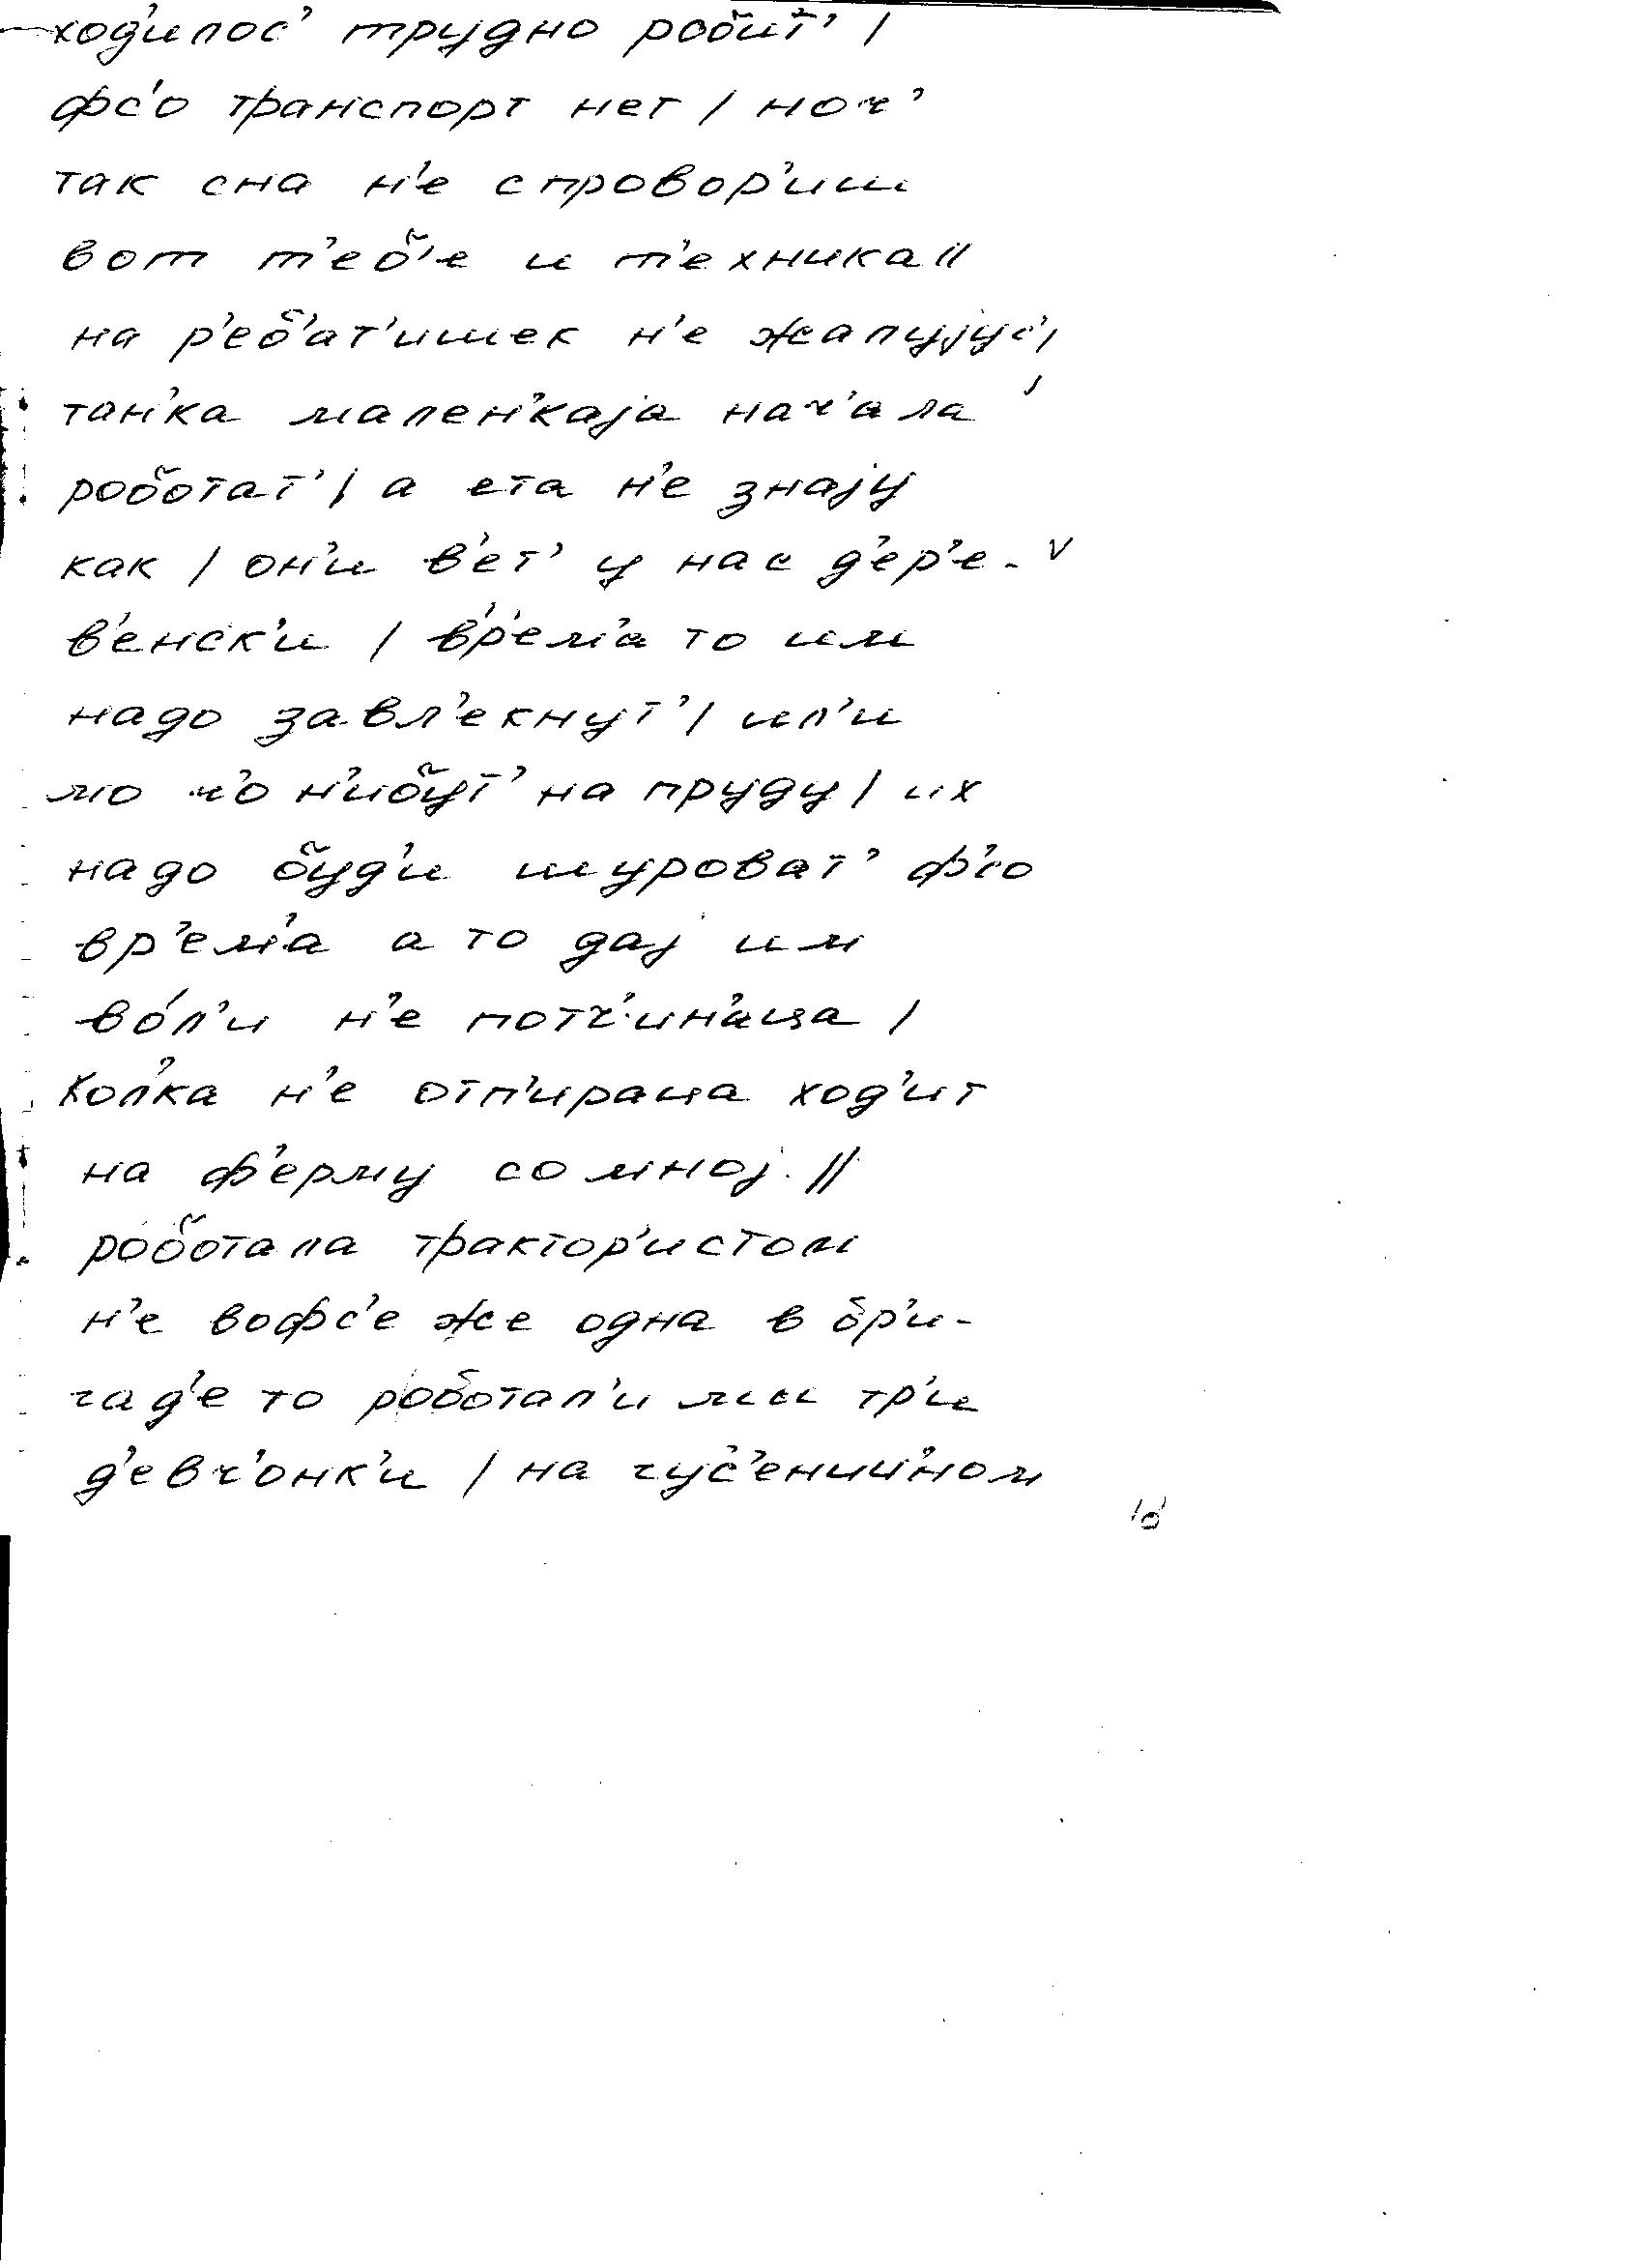 ход'илос' трудно робит' /
фс'о транспорт нет / ноч'
так сна н'е спровор'иш
вот т'еб'е и т'ехника //
на р'еб'ат'ишек н'е жалујус' /
тан'ка мален'каја нач'ала
роботат' / а ета н'е знају
как / он'и в'ет' у нас д'ер'е-
в'енск'и / в'р'ем'а то им
надо завл'екнут' / ил'и
мо ч'о н'ибут' на пруду / их
надо буд'и шуроват' ф'с'о
вр'ем'а а то дај им
во́л'и н'е потч'ин'аца /
Кол'ка н'е отп'ираца ход'ит
на ф'ерму со мној //
работала трактор'истом
н'е вофс'е же одна в бр'и-
гад'е то роботал'и мы тр'и
д'евч'онк'и / на гус'енич'ном
10